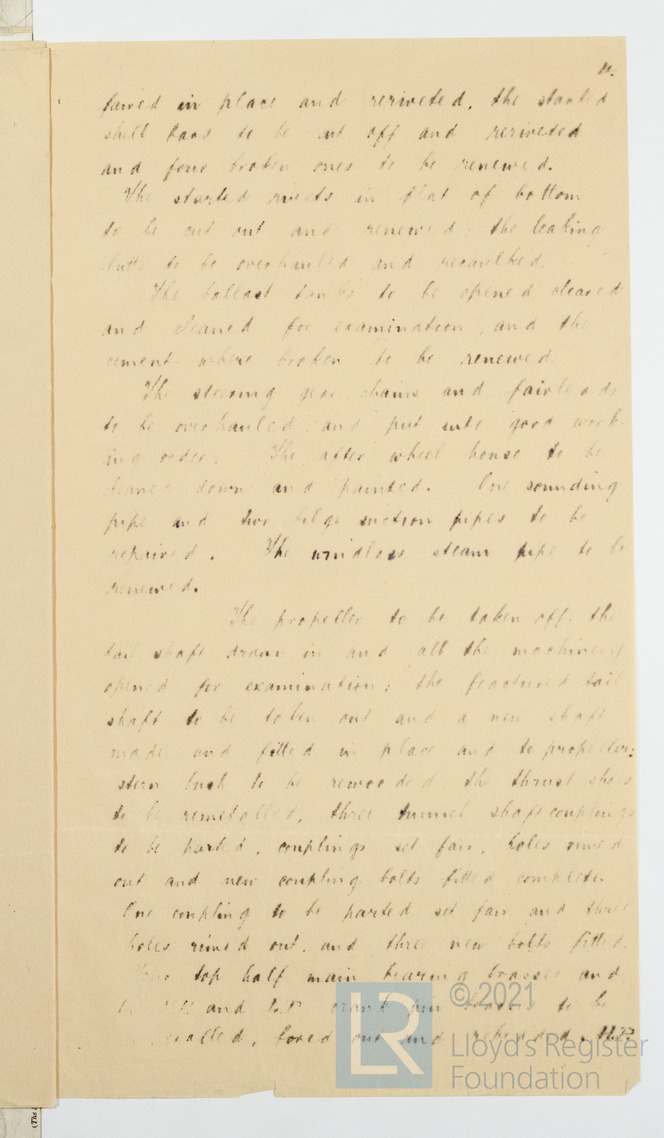 faired in place and reriveted, the started
shell bars to be cut off and reriveted
and four broken ones to be renewed.
The started rivets in flat of bottom
to be cut out and renewed; the leaking
butts to be overhauled and recaulked.
The ballast tanks to be opened cleared
and cleaned for examination, and the
cement where broken to be renewed.
The steering gear chains and fairleads
to be overhauled and put into good work-
ing order. The after wheel house to be
down and painted. One sounding
pipe and two bilge suction pipes to be
repaired. The windlass steam pipe to be
renewed.
The propeller to be taken off, the
tail shaft drawn in and all the machinery
opened for examination; the fractured tail
shaft to be taken out and a new shaft
made and fitted in place and to propeller;
stern bush to be rewooded the thrust shoes
to be remetalled, three tunnel shaft couplings
to be parted, couplings set fair, holes rimed
out and new coupling bolts fitted complete.
One coupling to be parted set fair and three
holes rimed out, and three new bolts fitted.
top half main bearing brasses and
and L.P. crank pin brasses to be
bored out and rebedded. H.P.
LR
©2021
Lloyd's Register
Foundation